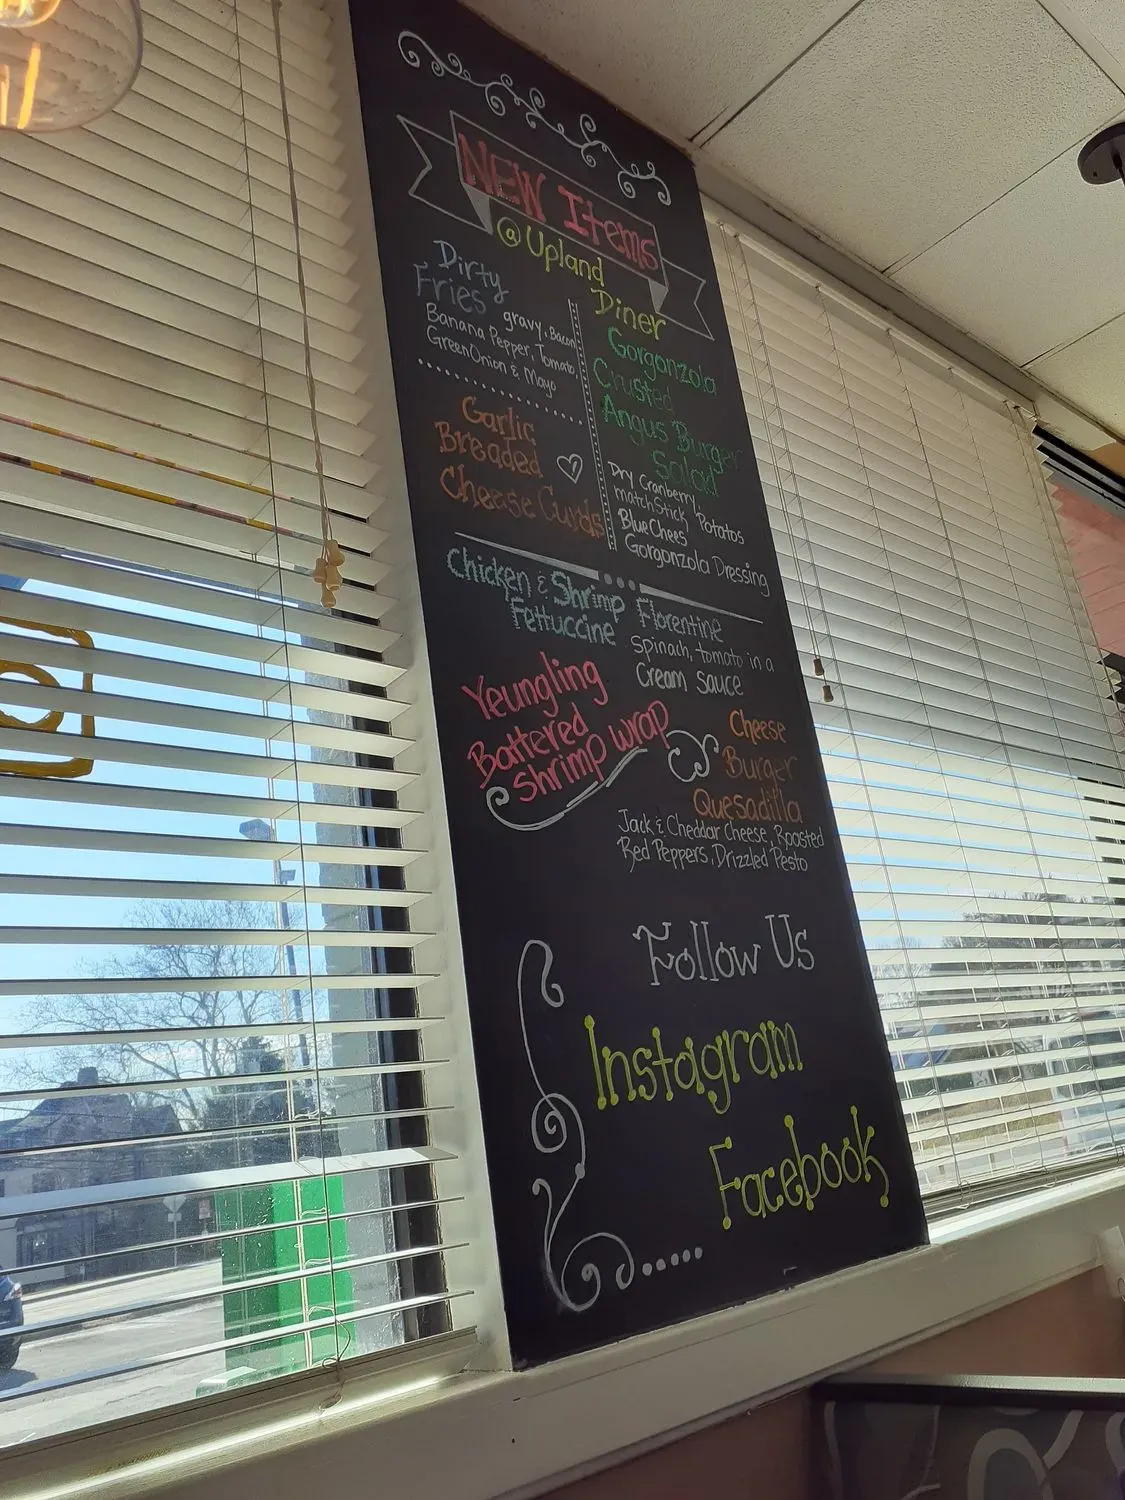 NEW Items
@ Upland
Diner
Dirty
Fries gravy, Bacon,
Banana Pepper, Tomato,
Green Onion & Mayo
Garlic
Breaded
Cheese Curds
Gorgonzola
Crusted
Angus Burger
Salad
Dry Cranberry
matchstick Potatos
Blue Chees
Gorgonzola Dressing
Chicken & Shrimp
Fettuccine
Florentine
Spinach, tomato in a
Cream sauce
Yeungling
Battered
shrimp wrap
Cheese
Burger
Quesadilla
Jack & Cheddar Cheese, Roasted
Red Peppers, Drizzled Pesto
Follow Us
Instagram
Facebook